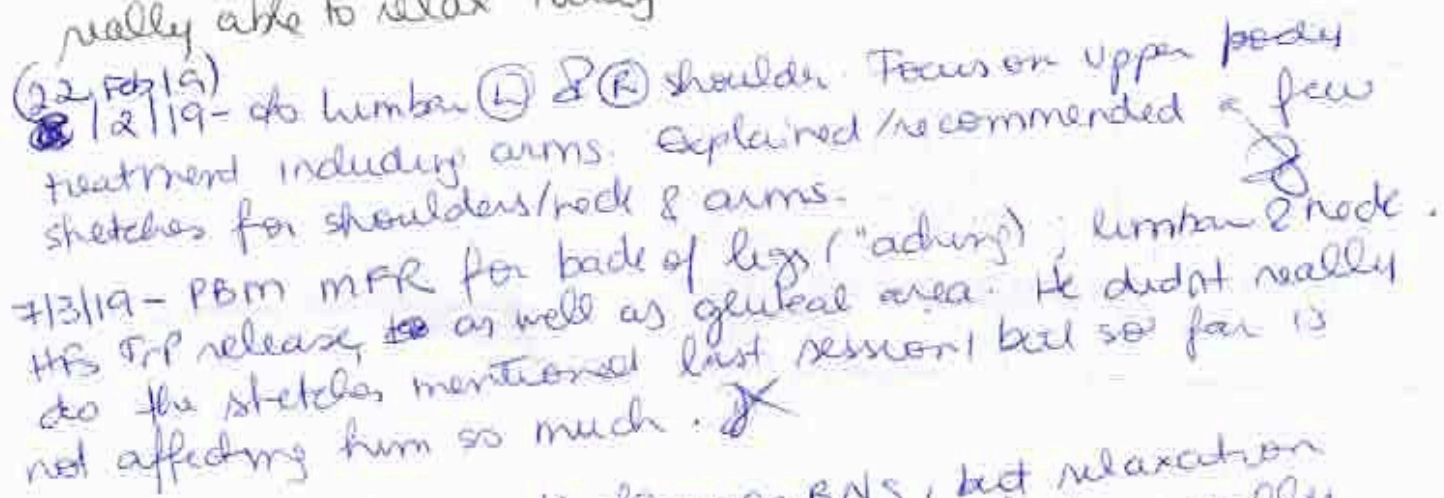 really able to relax
(22 Feb 19)
/2/19- c/o lumbar (L) & (R) shoulder. Focus on upper body
treatment including arms. Explained/recommended a few
stretches for shoulders/neck & arms.
7/3/19- PBM MFR for back of legs ("aching"), lumbar & neck.
HFs TrP release, as well as gluteal area. He didn't really
do the stretches mentioned last session, but so far is
not affecting him so much.
, but relaxation